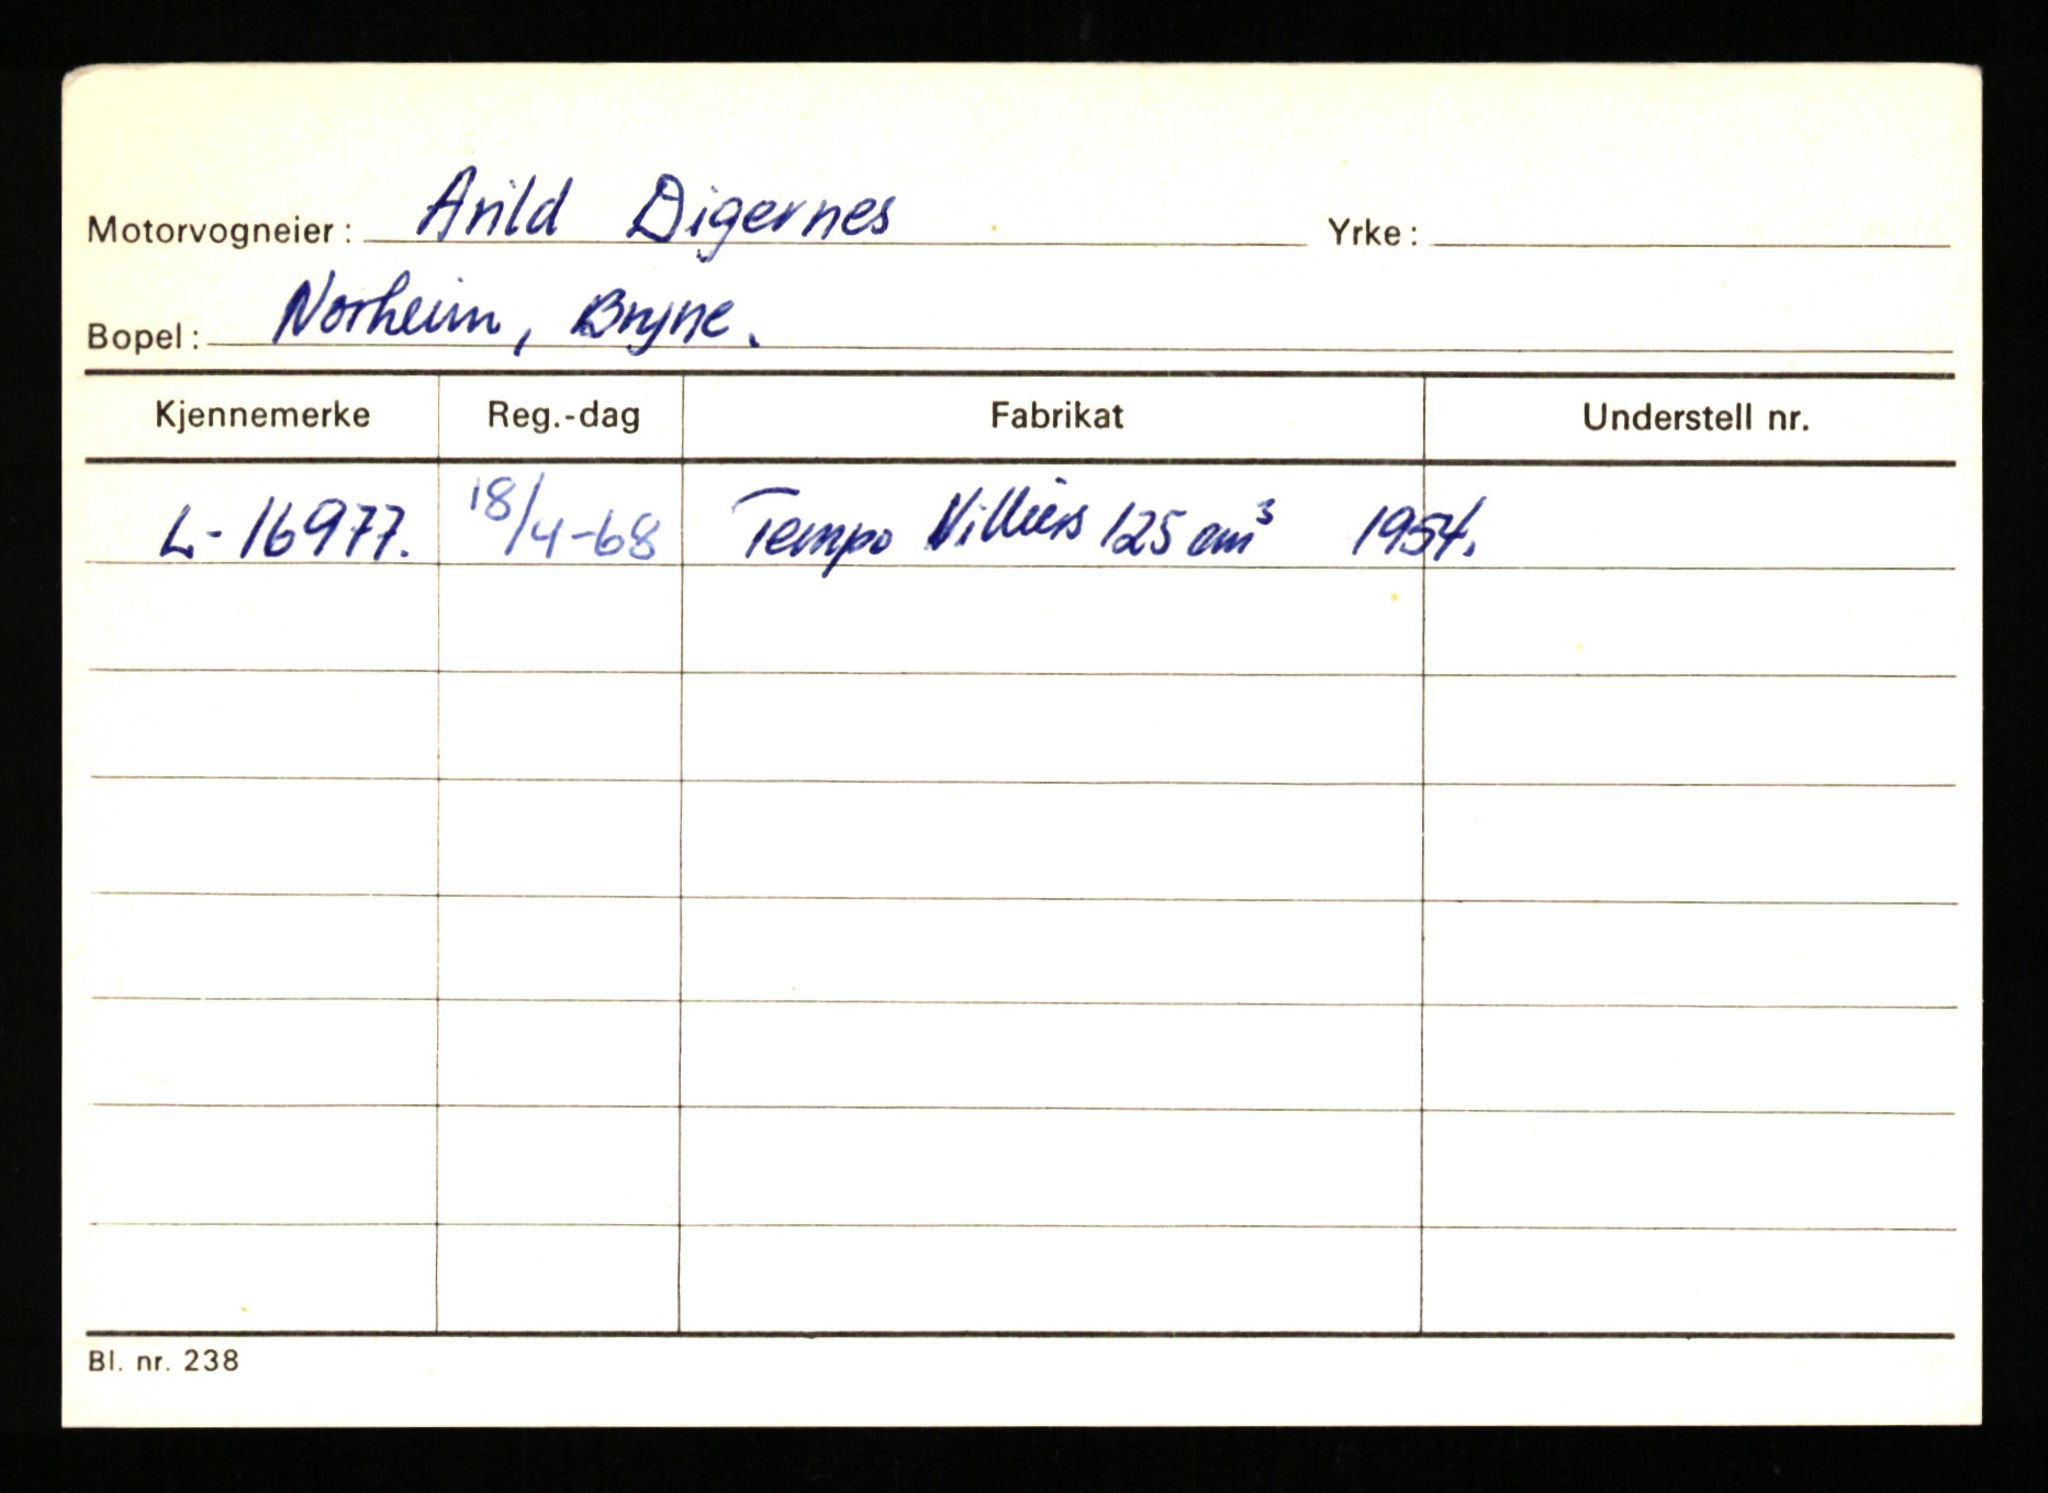 Motorvogneier: Arild Digernes Yrke:
Bopel: Norheim, Bryne.
Kjennemerke Reg.-dag Fabrikat Understell nr.
L-16977. 18/4-68 Tempo Villiers 125 cm³ 1954.
Bl. nr. 238